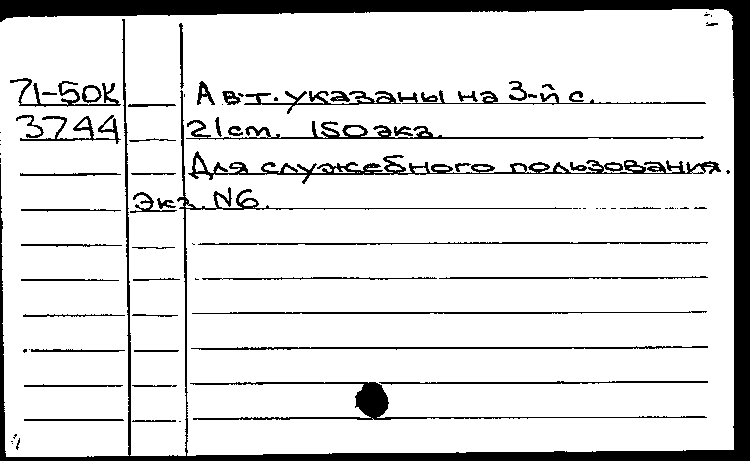 2
71-50К Авт. указаны на 3-й с.
3744 21 cm. 150 экз.
Для служебного пользования.
Экз. N6.